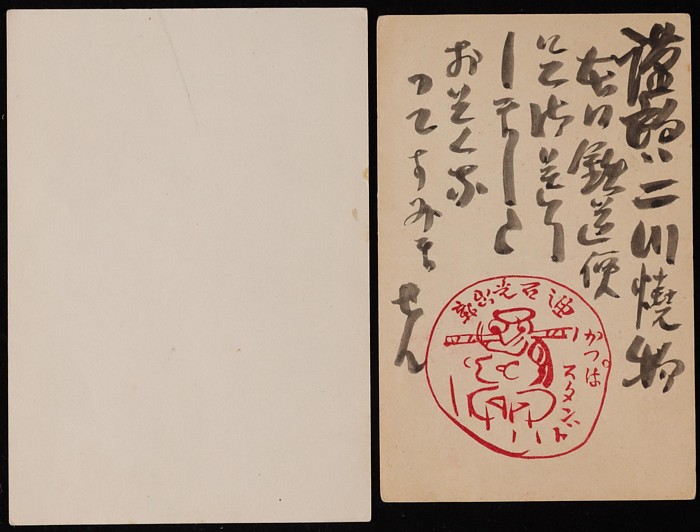 謹啓 二川燒物
本日鉄道便
にて御送り
しました
おそくな
つてすみません
かつぱ
スタンド